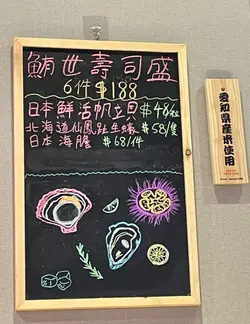 鮪世壽司盛
6件$188
日本鮮活帆立貝 $48/粒
北海道仙鳳趾生蠔 $58/隻
日本海膽 $68/件
愛知県産米使用